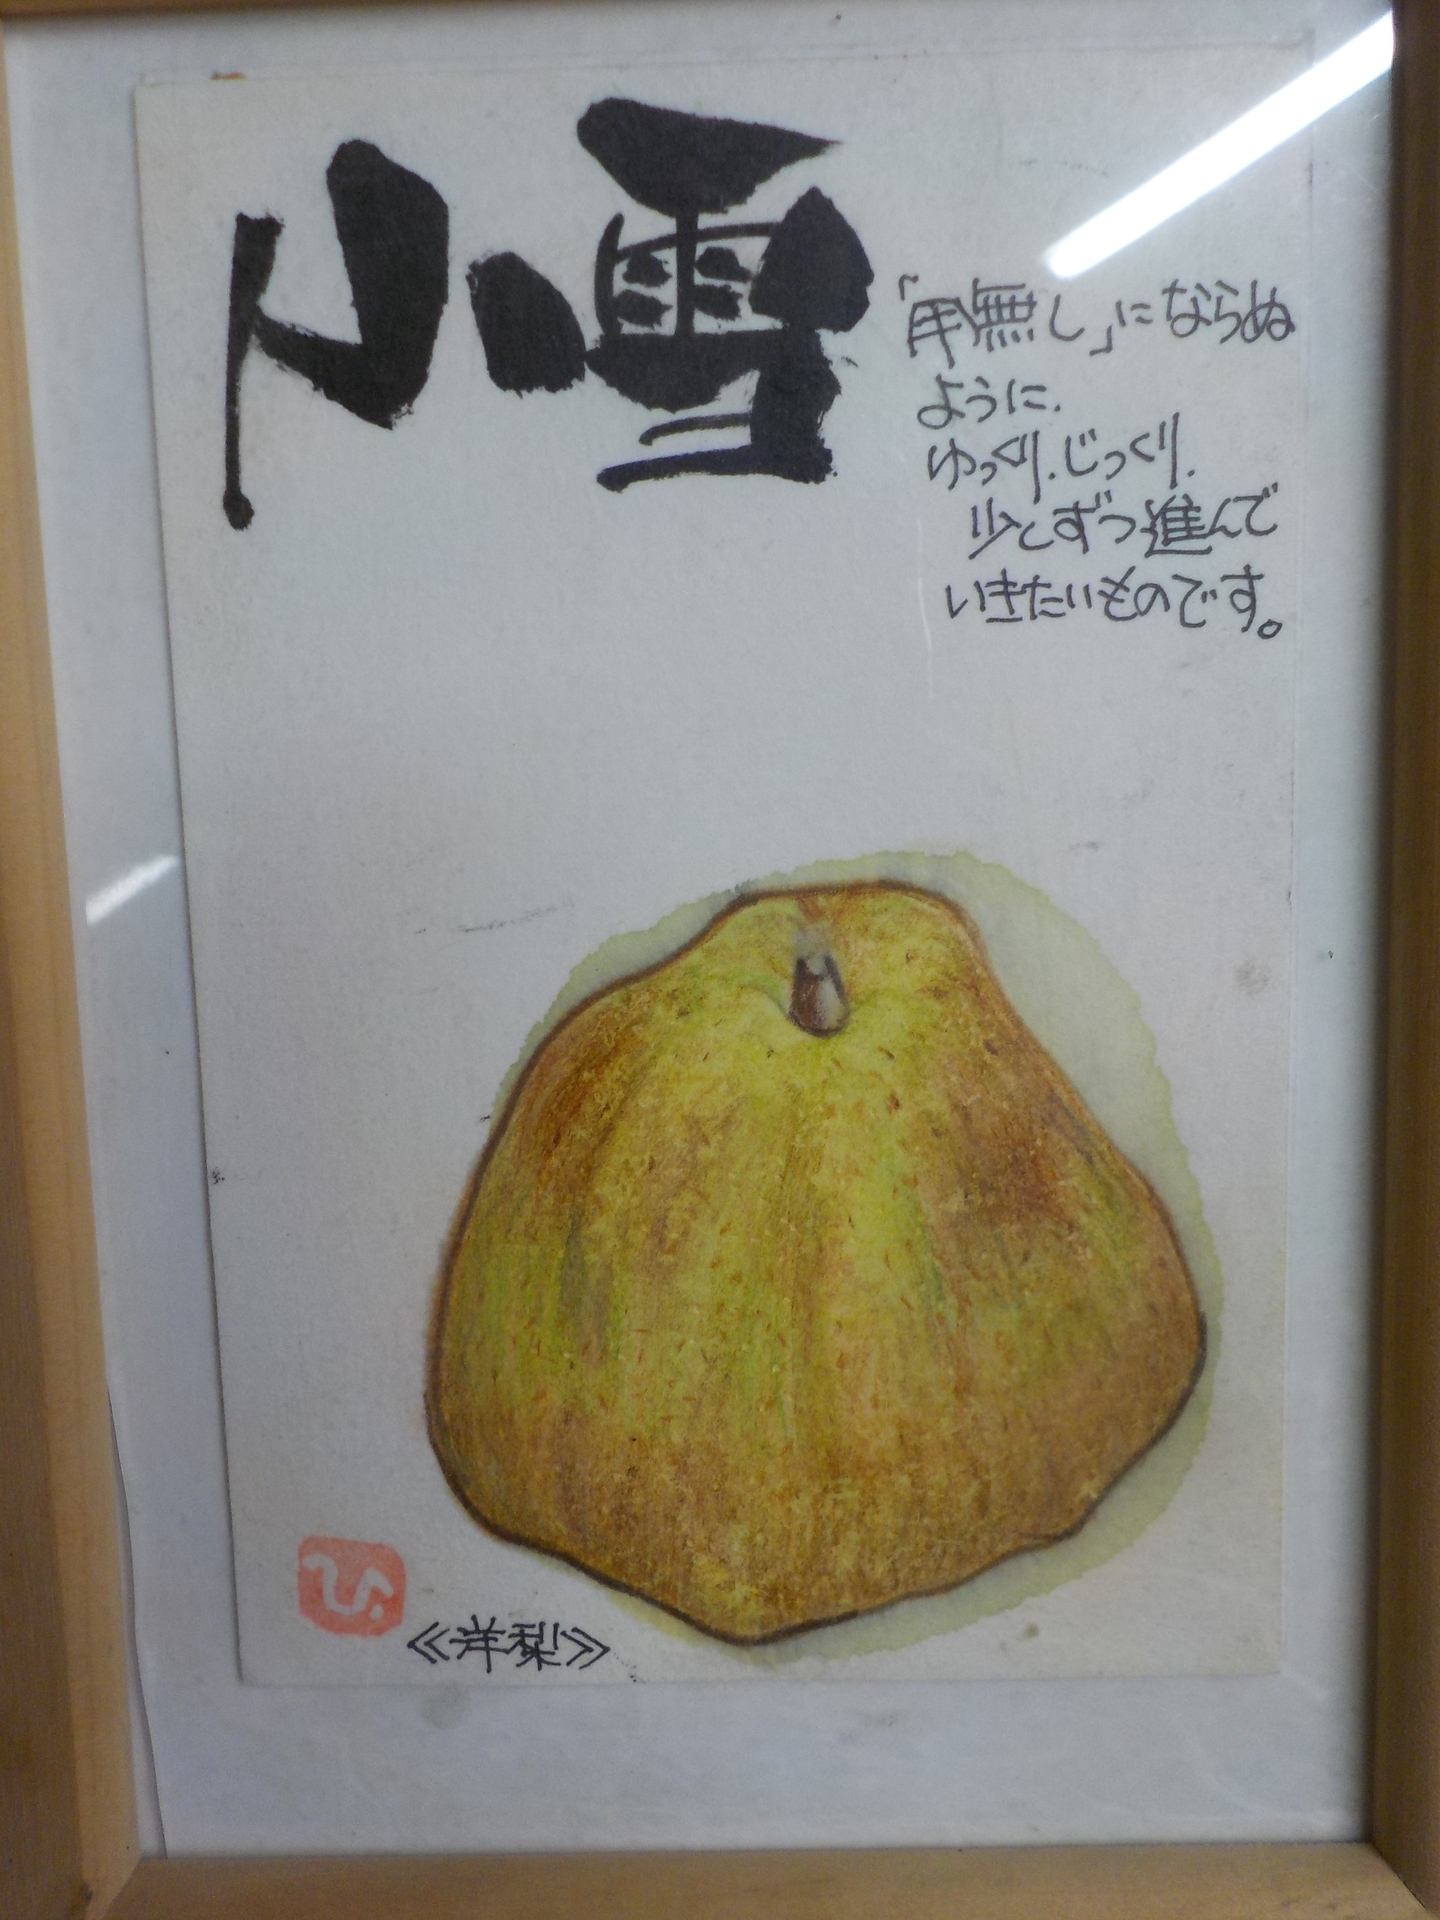 小雪
「用無し」にならぬ
ように.
ゆっくり.じっくり.
少しずつ進んで
いきたいものです。
ひ
≪洋梨≫